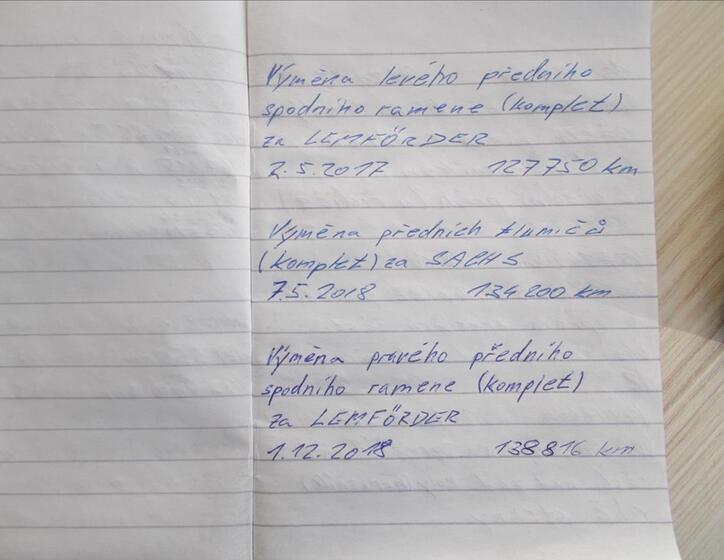 Výměna levého předního
spodního ramene (komplet)
za LEMFÖRDER
2.5.2017 127750 km
Výměna předních tlumičů
(komplet) za SACHS
7.5.2018 134200 km
Výměna pravého předního
spodního ramene (komplet)
za LEMFÖRDER
1.12.2018 138816 km